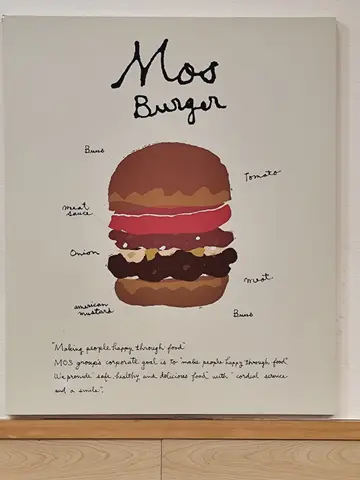 Mos
Burger
Buns
Tomato
meat
sauce
Onion
meat
american
mustard
Buns
"Making people happy through food"
MOS group's corporate goal is to "make people happy through food"
We provide "safe, healthy and delicious food" with "cordial service
and a smile".